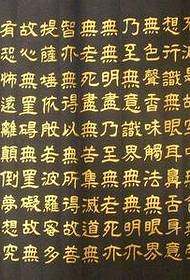 想行識無眼耳鼻舌身意
無色聲香味觸法無眼界
乃至無意識界無無明亦
無無明盡乃至無老死亦
無老死盡無苦集滅道無
智亦無得以無所得故菩
提薩埵依般若波羅蜜多
故心無罣礙無罣礙故無
有恐怖遠離顛倒夢想究